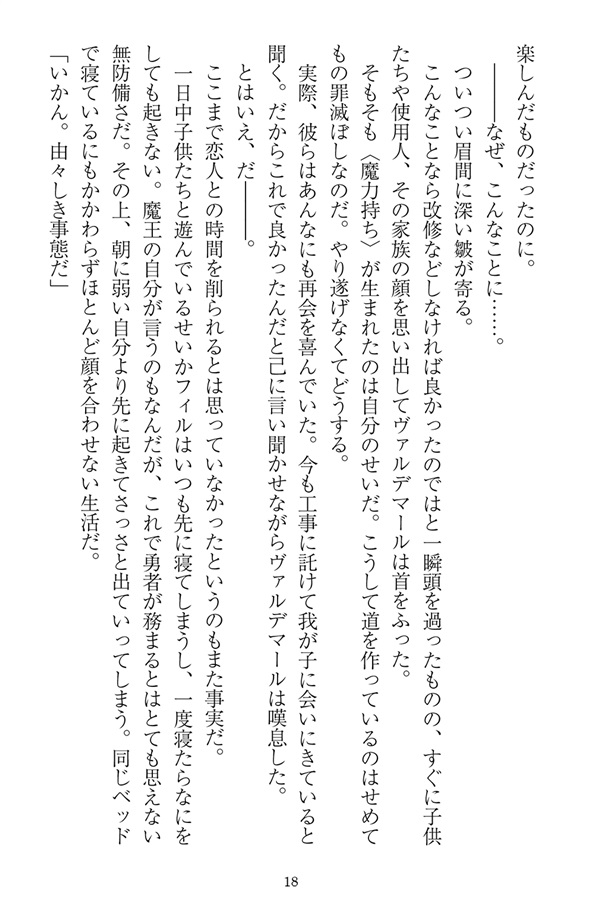 楽しんだものだったのに。
――なぜ、こんなことに……。
ついつい眉間に深い皺が寄る。
こんなことなら改修などしなければ良かったのではと一瞬頭を過ったものの、すぐに子供
たちや使用人、その家族の顔を思い出してヴァルデマールは首をふった。
そもそも〈魔力持ち〉が生まれたのは自分のせいだ。こうして道を作っているのはせめて
もの罪滅ぼしなのだ。やり遂げなくてどうする。
実際、彼らはあんなにも再会を喜んでいた。今も工事に託けて我が子に会いにきていると
聞く。だからこれで良かったんだと己に言い聞かせながらヴァルデマールは嘆息した。
とはいえ、だ――。
ここまで恋人との時間を削られるとは思っていなかったというのもまた事実だ。
一日中子供たちと遊んでいるせいかフィルはいつも先に寝てしまうし、一度寝たらなにを
しても起きない。魔王の自分が言うのもなんだが、これで勇者が務まるとはとても思えない
無防備さだ。その上、朝に弱い自分より先に起きてさっさと出ていってしまう。同じベッド
で寝ているにもかかわらずほとんど顔を合わせない生活だ。
「いかん。由々しき事態だ」
18